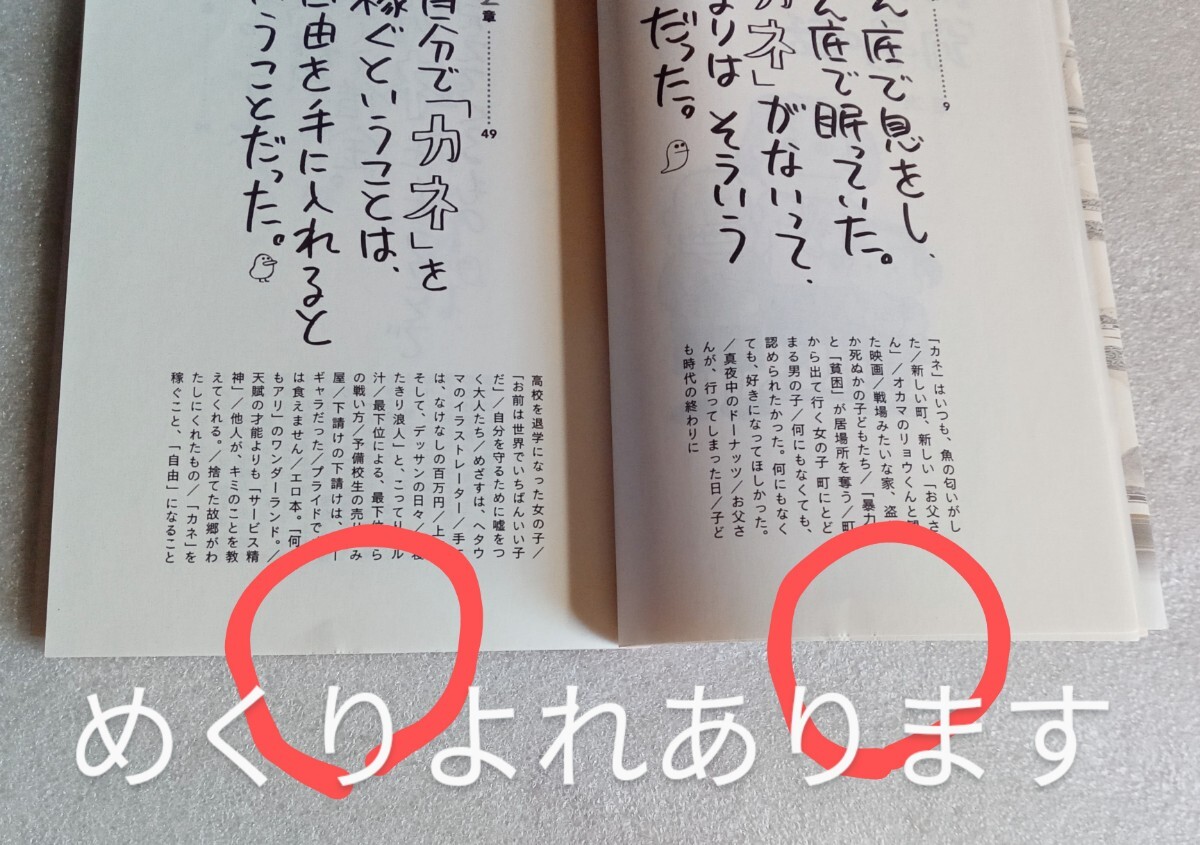 9
ん底で息をし、
ん底で眠っていた。
カネ」がないって、
まりは そういう
だった。
「カネ」はいつも、魚の匂いがし
た／新しい町、新しい「お父さ
ん」／オカマのリョウくんと観
た映画／戦場みたいな家、盗
か死ぬかの子どもたち／「暴力
と「貧困」が居場所を奪う／町
から出て行く女の子 町にとど
まる男の子／何にもなくても、
認められたかった。何にもなく
ても、好きになってほしかった。
／真夜中のドーナッツ／お父さ
んが、行ってしまった日／子ど
も時代の終わりに
章
49
自分で「カネ」を
稼ぐということは、
由を手に入れると
うことだった。
高校を退学になった女の子／
「お前は世界でいちばんいい子
だ」／自分を守るために嘘をつ
く大人たち／めざすは、ヘタウ
マのイラストレーター／手
は、なけなしの百万円／上
そして、デッサンの日々／
たきり浪人」と、こってり ル
汁／最下位による、最下位 ら
の戦い方／予備校生の売り み
屋／下請けの下請けは、 ー
ギャラだった／プライドで
は食えません／エロ本。「何
もアリ」のワンダーランド。／
天賦の才能よりも「サービス精
神」／他人が、キミのことを教
えてくれる。／捨てた故郷がわ
たしにくれたもの／「カネ」を
稼ぐこと、「自由」になること
めくりよれあります